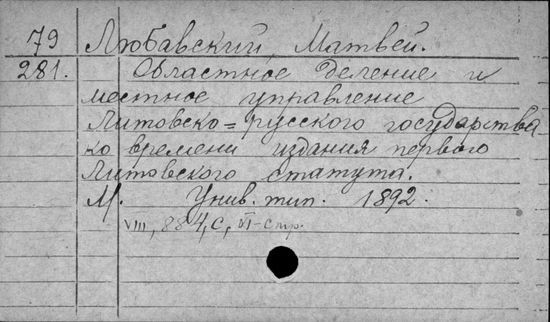 79 Любавский, Матвей.
281. Областное деление и
местное управление
Литовско=русского государства
ко времени издания первого
Литовского статута.
М. Унив. тип. 1892.
VIII, 884, С, VI - стр.